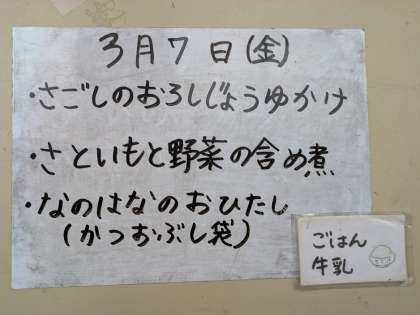 3月7日(金)
・さごしのおろしじょうゆかけ
・さといもと野菜の含め煮
・なのはなのおひたし
(かつおぶし袋)
ごはん
牛乳